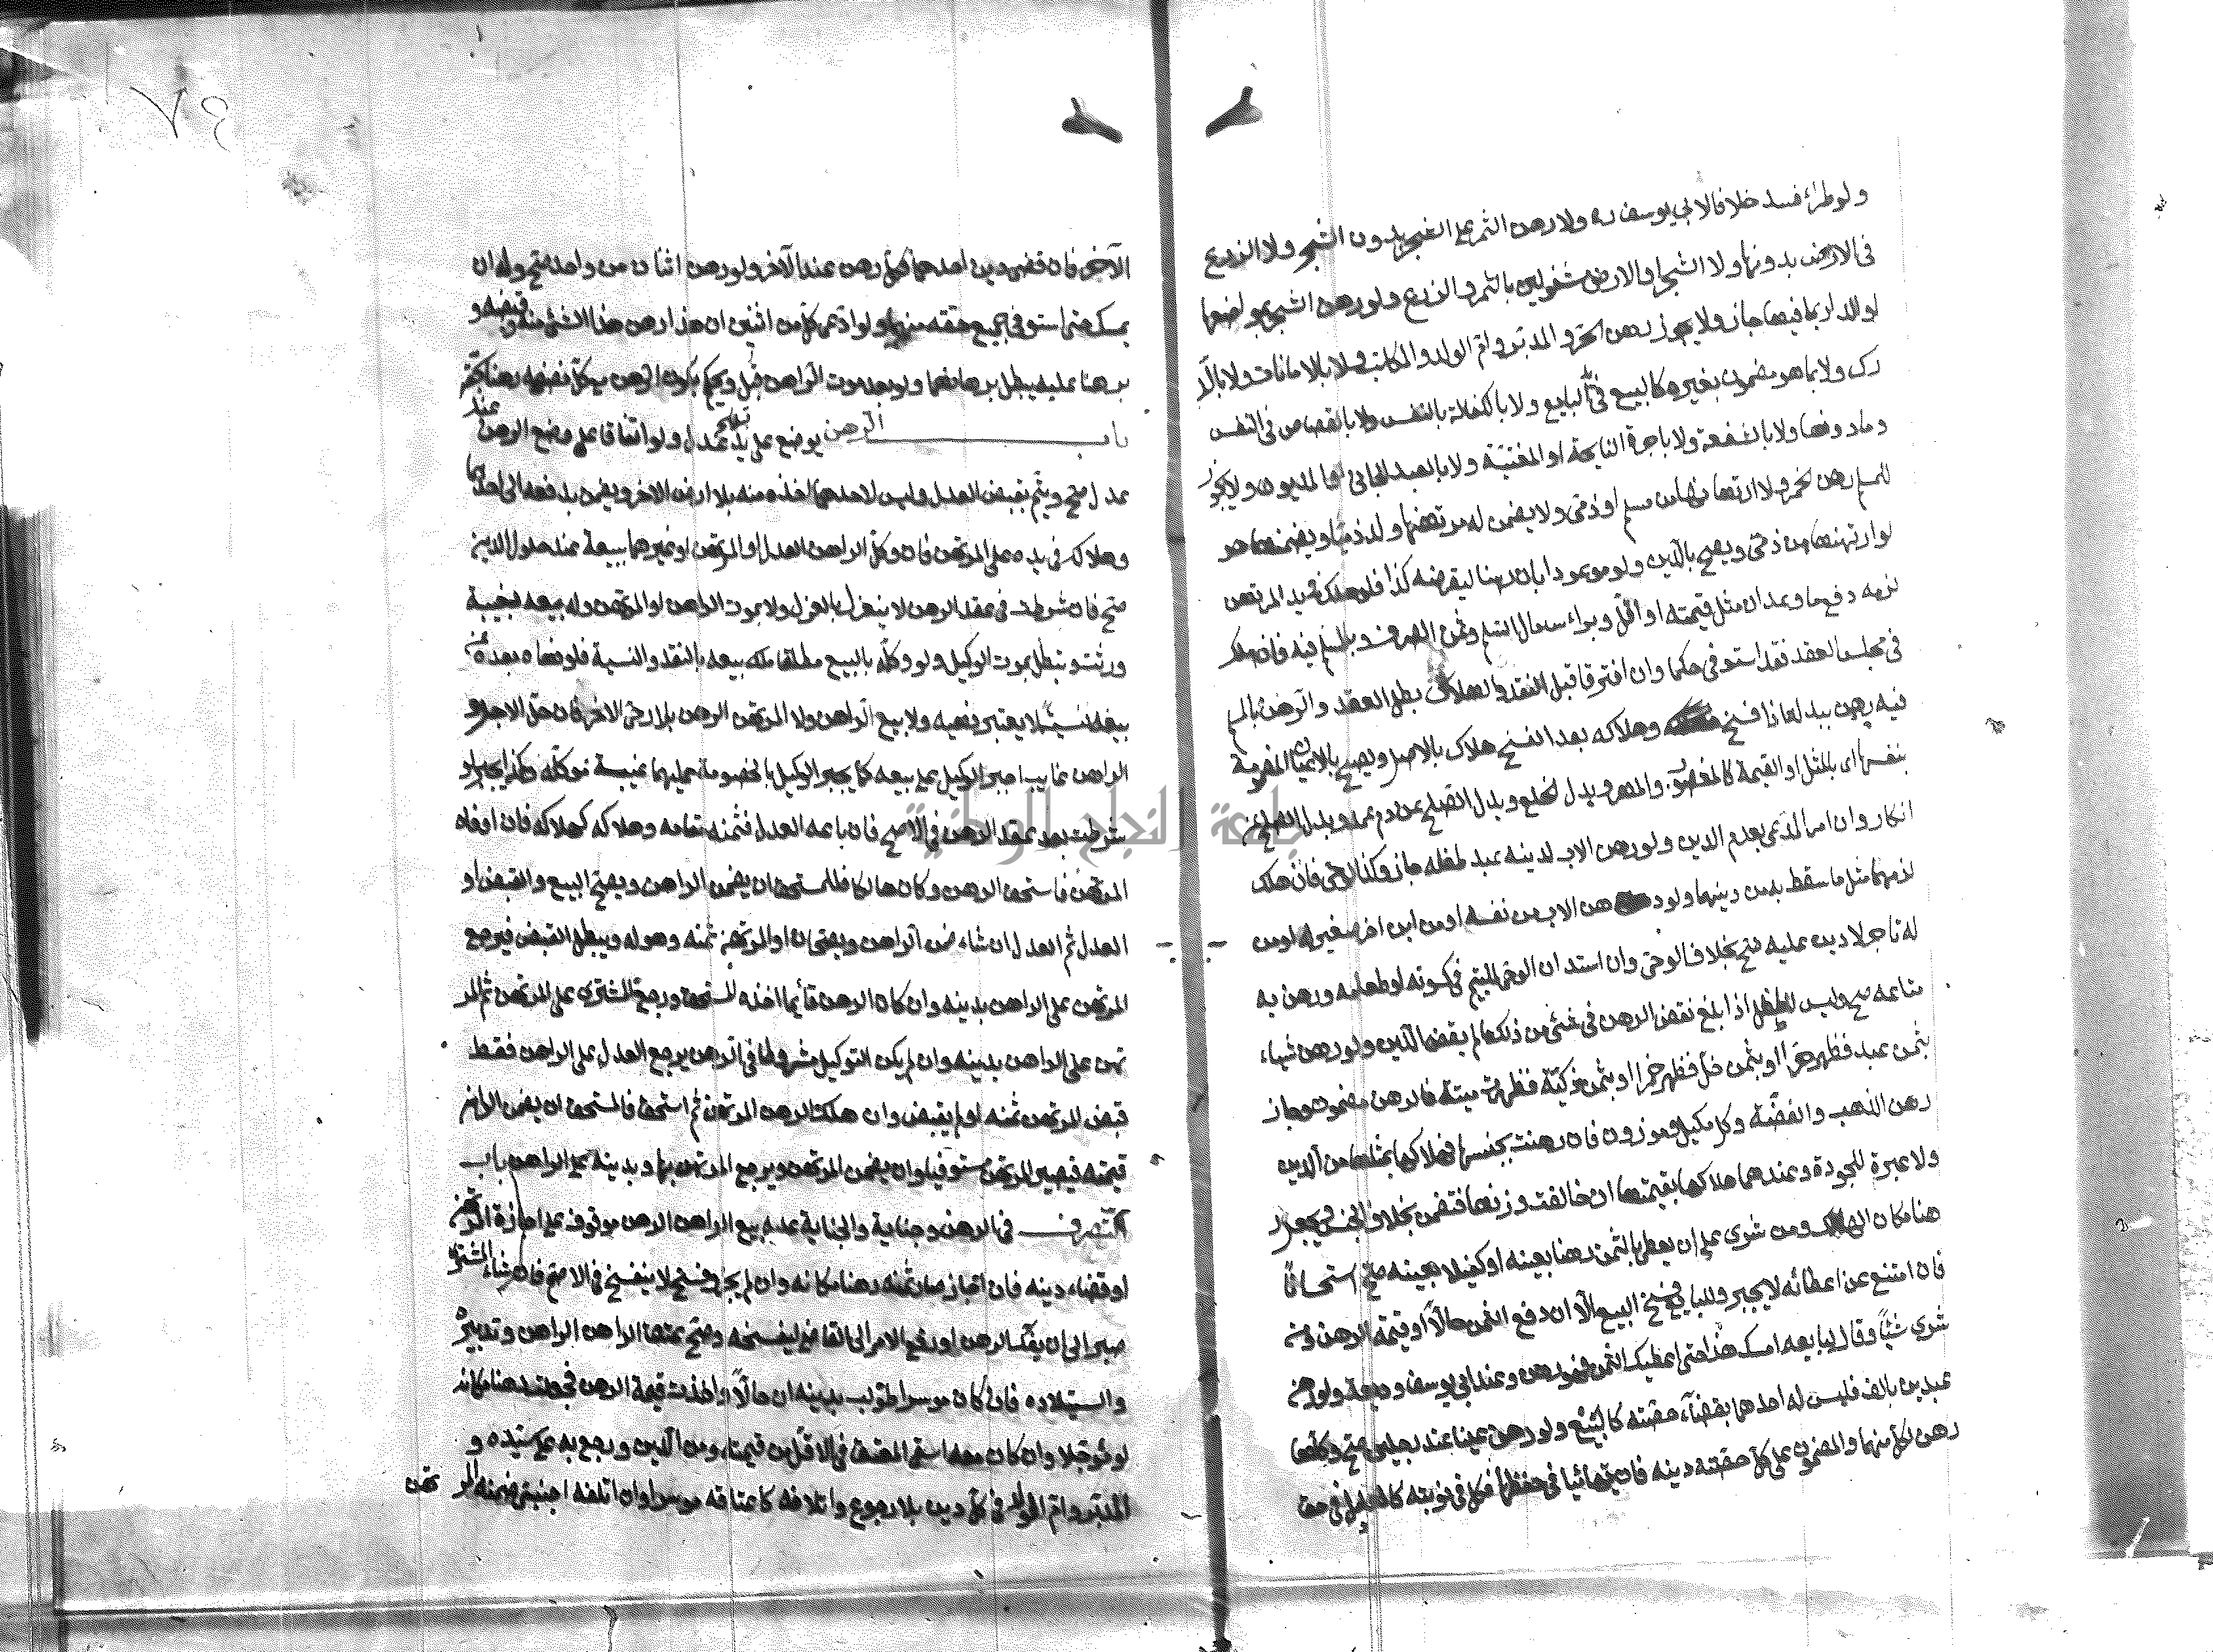 ولو طرأ فسد خلافا لابي يوسف ره ولا رهن الثمر على الشجر بدون الشجر ولا الزرع
في الارض بدونها ولا الشجر او الارض مشغولين بالثمر والزرع ولو رهن الشجر بمواضعها
او الدار بما فيها جاز ولا يجوز رهن الحر والمدبر وام الولد والمكاتب ولا بالامانات ولا بالد
رك ولا بما هو مضمون بغيره كالمبيع في يد البايع ولا بالكفالة بالنفس ولا بالقصاص في النفس
وما دونها ولا بالشفعة ولا باجرة النايحة او المغنية ولا بالعبد الجاني او المديون ولا يجوز
للمسلم رهن الخمر ولا ارتهانها من مسلم او ذمي ولا يضمن له مرتهنها ولو ذميا ويضمنها هو
لو ارتهنها من ذمي ويصح بالدين ولو موعودا بان رهنا ليقرضه كذا فلو هلك في يد المرتهن
لزمه دفع ما وعد ان مثل قيمته او اقل وبراس مال السلم وثمن الصرف وبالمسلم فيه فان هلك
في مجلس العقد فقد استوفى حكما وان افترقا قبل النقد والهلاك بطل العقد والرهن بالمسلم
فيه رهن ببدله اذا فسخ وهلاكه بعد الفسخ هلاك بالاصل ويصح بالاعيان المضمونة
بنفسها اى بالمثل او القيمة كالمغصوب والمهر وبدل الخلع وبدل الصلح عن دم عمد وبدل الصلح عن
انكار وان اقر المدعى بعدم الدين ولو رهن الاب لدينه عبد طفله جاز وكذا الوصي فان هلك
لزمهما مثل ما سقط به من دينهما ولو رهن الاب من نفسه او من ابن اخر صغير له او من
له تاجر لا دين عليه صح بخلاف الوصى وان استدان الوصي لليتيم في كسوته او طعامه ورهن به
متاعه صح وليس للطفل اذا بلغ نقض الرهن في شئ من ذلك ما لم يقض الدين ولو رهن شياء
بثمن عبد فظهر حرا او بثمن خل فظهر خمرا او بثمن ذكية فظهرت ميتة فالرهن مضمون وجاز
رهن الذهب والفضة وكل مكيل وموزون فان رهنت بجنسها فهلاكها بمثلها من الدين
ولا عبرة للجودة وعندهما هلاكها بقيمتها ان خالفت وزنها فتضمن بخلاف الجنس ويجعل
هنا مكان الهالك ومن شرى على ان يعطى بالثمن رهنا بعينه او كفيلا بعينه صح استحسانا
فان امتنع عن اعطائه لا يجبر وللبايع فسخ البيع الا ان دفع الثمن حالا او قيمة الرهن ومن
شرى شئا وقال لبايعه امسك هذا حتى اعطيك الثمن فهو رهن وعند ابي يوسف وديعة ولو رهن
عبدين بالف فليس له اخذ احدهما بقضاء حصته كالبيع ولو رهن عينا عند رجلين صح وكلها
رهن لكل منهما والمضمون على كل حصته دينه فان تهائيا في حفظها فكل في نوبته كالعدل في حق
٧٤
الآخر فان قضى دين احدهما فكلها رهن عند الآخر ولو رهن اثنان من واحد صح وله ان
يمسكه حتى استوفى جميع حقه منهما ولو ادعى كل من اثنين ان هذا رهن هذا الشئ منه وقبضه و
برهنا عليه يبطل برهانهما ولو بعد موت الراهن قبل ويحكم بكون الرهن مع كل نصفه رهنا بحقه
باب الرهن يوضع على يد عدل ولو اتفاقا على وضع الرهن عند
عدل صح ويتم بقبض العدل وليس لاحدهما اخذه منه بلا ارض الاخر ويضمن بدفعه الى احدهما
وهلاكه في يده على المرتهن فان وكل الراهن العدل او المرتهن او غيرهما ببيعه عند حلول الدين
صح فان شرطت في عقد الرهن لا ينعزل بالعزل ولا بموت الراهن او المرتهن وله بيعه بغيبة
ورثته وتبطل بموت الوكيل ولو وكله بالبيع مطلقا ملك بيعه بالنقد والنسية فلو نهاه بعده عن
بيعه نسيئة لا يعتبر نهيه ولا يبيع الراهن ولا المرتهن الرهن بلا رضى الاخر فان حل الاجل و
الراهن غايب اجبر الوكيل على بيعه كما يجبر الوكيل بالخصومة عليها غيبة موكله وكذا يجبر لو
شرطت بعد عقد الرهن في الاصح فان باعه العدل فثمنه مقامه وهلاكه كهلاكه فان اوفاه
المرتهن فاستحق الرهن وكان هالكا فللمستحق ان يضمن الراهن ويصح البيع والقبض او
العدل ثم العدل ان شاء ضمن الراهن ويصحان او المرتهن ثمنه وهو له ويبطل القبض فيرجع
المرتهن على الراهن بدينه وان كان الرهن قائما اخذه المستحق ورجع المشتري على المرتهن ثم المر
تهن على الراهن بدينه وان لم يكن التوكيل مشروطا في الرهن يرجع العدل على الراهن فقط
قبض المرتهن ثمنه او لم يقبض وان هلك الرهن المرتهن ثم استحق فالمستحق ان يضمن الراهن
قيمته فيصير المرتهن مستوفيا وان يضمن المرتهن ويرجع المرتهن بها وبدينه على الراهن باب
التصرف في الرهن وجناية والجناية عليه بيع الراهن الرهن موقوف على اجازة المرتهن
او قضاء دينه فان اجاز صار ثمنه رهنا مكانه وان لم يجز وفسخ لا ينفسخ في الاصح فان شاء المشترى
صبر الى ان يفك الرهن او رفع الامر الى القاضي ليفسخه وصح عتق الراهن الراهن وتدبيره
والستيلاده فان كان موسرا طولب بدينه ان حالا واخذت قيمة الرهن فجعلت رهنا مكانه
لو مؤجلا وان كان معسرا سعى المعتق في الاقل من قيمته ومن الدين ورجع به على سيده و
المدبر وام الولد في كل دين بلا رجوع واتلافه كاعتاقه موسرا وان اتلفه اجنبي ضمنه المر
تهن
جامعة النجاح الوطنية